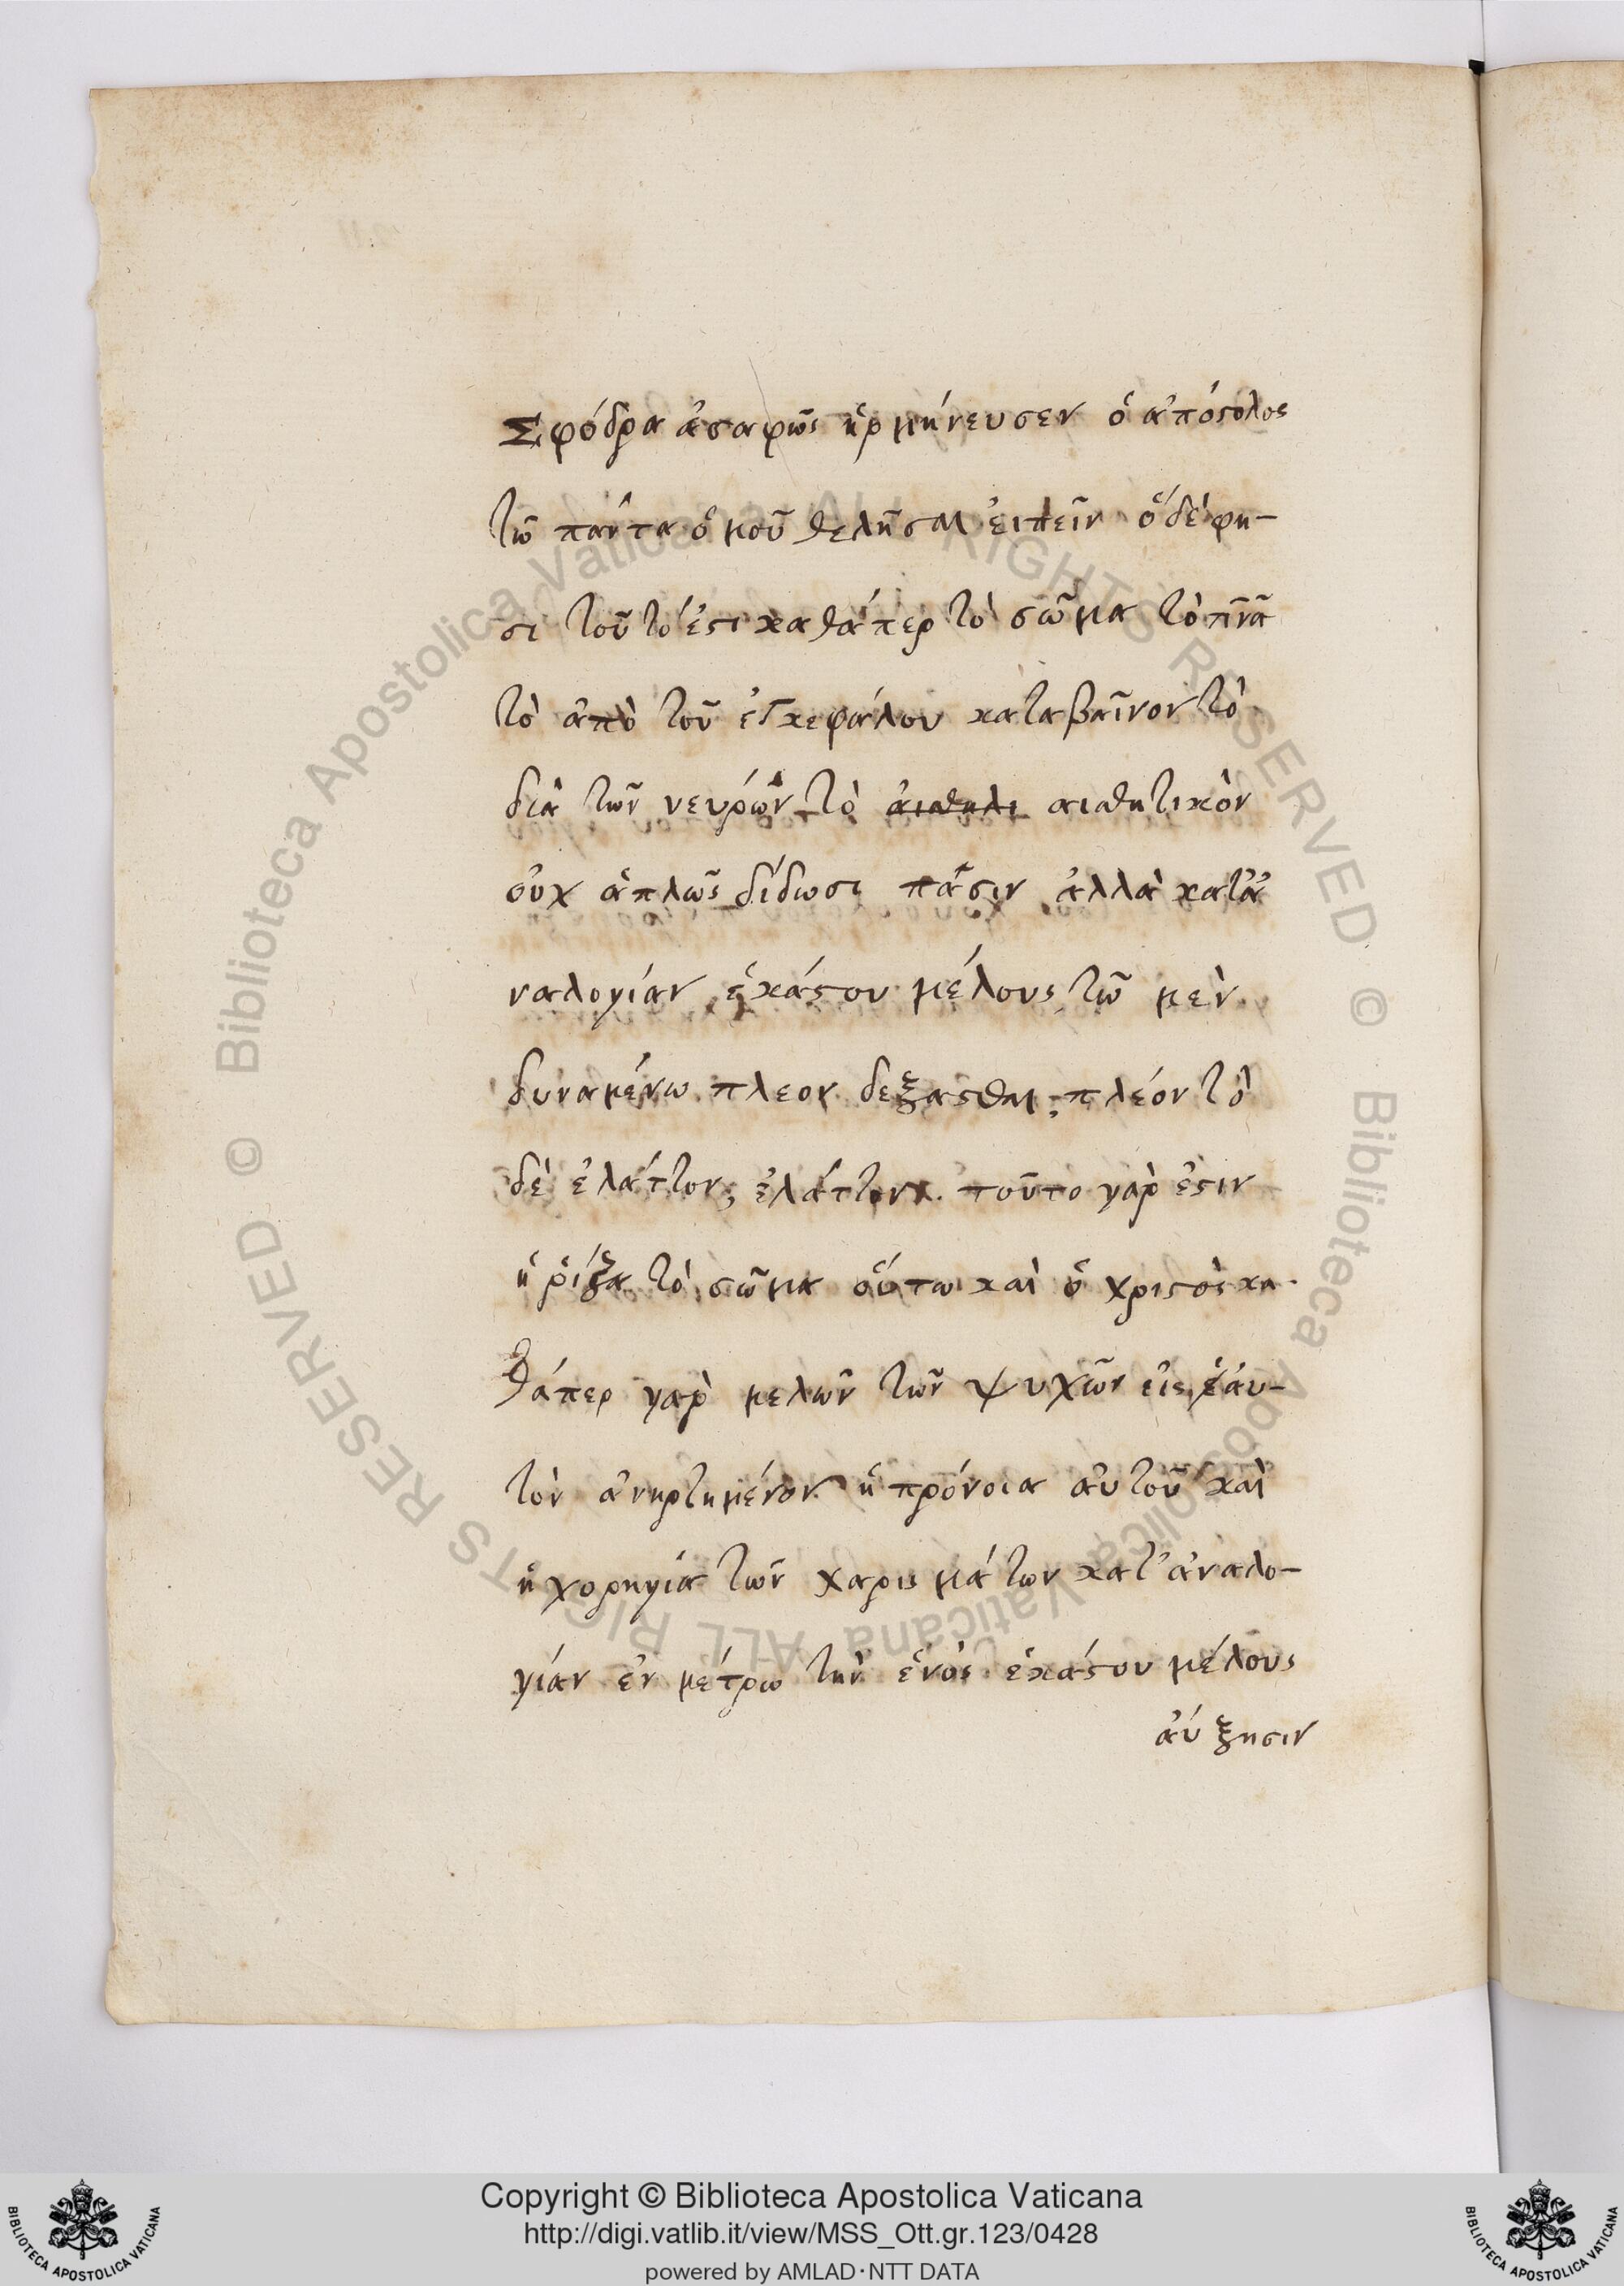 Σφόδρα ἀσαφῶς ἡρμήνευσεν ὁ ἀπόστολος
τῶ πάντα ὁμοῦ θελῆσαι ἐιπεῖν ὁ δέ φη-
σι τοῦτό ἐστι καθάπερ τὸ σῶμα τὸ πνᾶ
τὸ ἀπὸ τοῦ ἐγκεφάλου καταβαῖνον τὸ
διὰ τῶν νευρώων τὸ ἀισθητι αισθητικὸν
οὐχ ἁπλῶς δίδωσι πᾶσιν ἀλλὰ κατὰ ἀ
ναλογίαν ἑκάστου μέλους τῶ μὲν
δυναμένω πλεον δεξασθαι, πλέον τὸ
δὲ ἐλάττον, ἐλάττονα. τοῦτο γαρ ἐστιν
ἡ ῥίζα τὸ σῶμα οὕτω καὶ ὁ χριστὸς κα-
θάπερ γαρ μελῶν τῶν ψυχῶν εἰς ἑαυ-
τὸν ἀνηρτημένον ἡ πρόνοια αὐτοῦ καὶ
ἡ χορηγία τῶν χαρισμάτων κατ' ἀναλο-
γίαν ἐν μέτρω τὴν ἑνὸς ἑκάστου μέλους
ἀύξησιν
Copyright © Biblioteca Apostolica Vaticana
http://digi.vatlib.it/view/MSS_Ott.gr.123/0428
powered by AMLAD·NTT DATA
BIBLIOTECA APOSTOLICA VATICANA
BIBLIOTECA APOSTOLICA VATICANA
© Biblioteca Apostolica Vaticana ALL RIGHTS RESERVED © Biblioteca Apostolica Vaticana ALL RIGHTS RESERVED